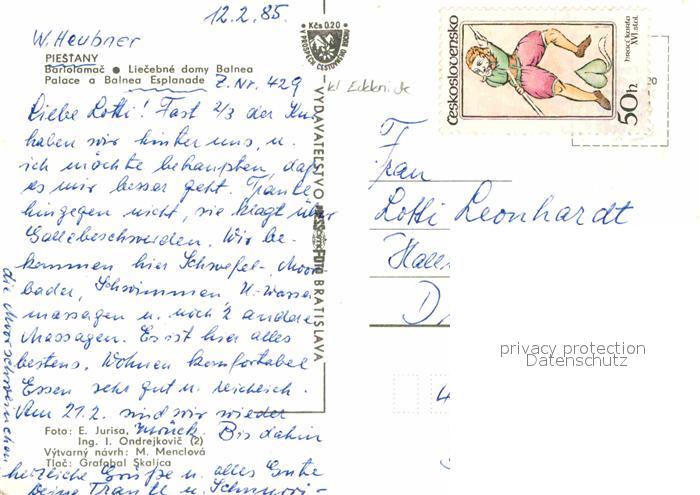 12.2.85.
W. Heubner
PIEŠŤANY
Barlolamač • Liečebné domy Balnea
Palace a Balnea Esplanade Z. Nr. 429
Kčs 0,20
Liebe Lotti! Fast 2/3 der Kur
haben wir hinter uns, u.
ich möchte behaupten, daß
es mir besser geht. Traute
hingegen nicht, sie klagt über
Gallebeschwerden. Wir be-
kommen hier Schwefel-, Moor
bäder, Schwimmen, U.-Wasser
massagen u. noch 2 andere
Massagen. Es ist hier alles
bestens. Wohnen komfortabel
Essen sehr gut u. reichlich.
Am 21.2. sind wir wieder
zurück. Bis dahin
herzliche Grüße u. alles Gute
Deine Traute u.
Foto: E. Jurisa,
Ing. I. Ondrejkovič (2)
Výtvarný návrh: M. Menclová
Tlač: Grafobal Skalica
die
VYDAVATEĽSTVO
BRATISLAVA
Československo
50h
hrací karta
XVI. stol.
20
Frau
Lotti Leonhardt
Hall
D
4
privacy protection
Datenschutz